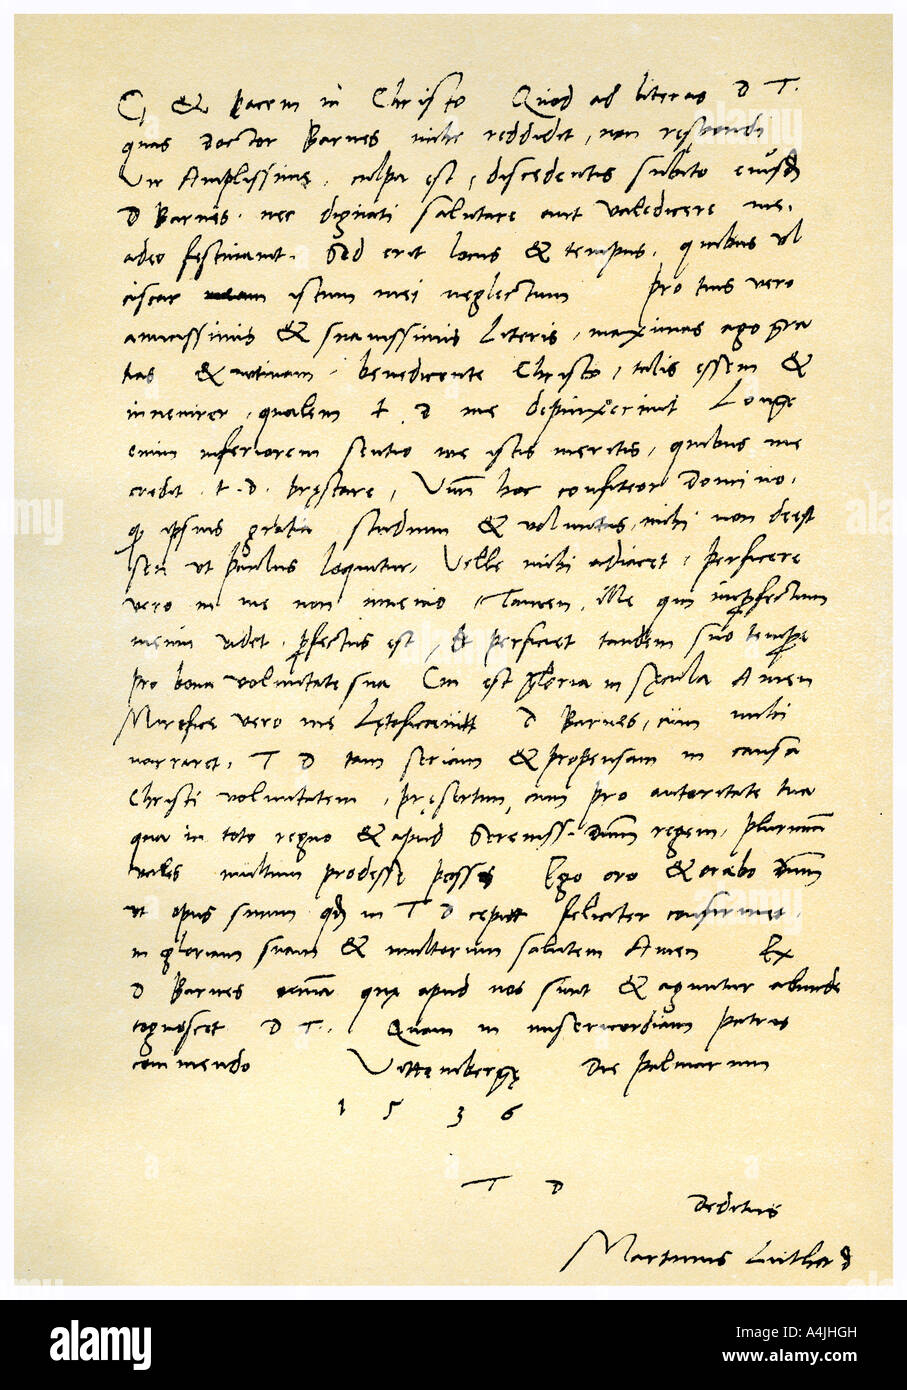 G & pacem in Christo Quod ad literas D T.
quas Doctor Barnes mihi reddidit, non respondi
Vir Amplissime, culpa est, discedentis subito eiusd
D Barnes. nec dignati salutare aut valedicere me.
adeo festinant. Sed erit locus & tempus, quibus ul
ciscar istum mei neglectum Pro tuis vero
amicissimis & suavissimis literis, maximas ago gra
tias & utinam benedicente Christo, talis essem &
invenirer, qualem t D me depinxerint Longe
enim inferiorem sentio me istis meritis, quibus me
credit .t.D. pręstare, Unū hoc confiteor Domino,
ipsius gratia studium & voluntas, mihi non deest
seu ut Paulus loquitur, Velle mihi adiacet, perficere
vero in me non invenio, Tamen, Ille qui imperfectum
meum videt, perfectus est, & perficiet tandem suo tempore
pro bona voluntate sua Cui est gloria in sęcula Amen
Mirifice vero me D Barnes, cum mihi
narraret, T D tam seriam & propensam in causa
Christi voluntatem, pręsertim, cum pro autoritate tua
qua in toto regno & apud Sereniss. Dnum regem, plurimū
vales multum prodesse Ego oro & orabo Dnum
ut opus suum in T D cepit feliciter confirmet,
in gloriam suam & multorum salutem Amen Ex
D Barnes omīa quę apud nos sunt & aguntur abunde
cognoscet D T. Quam in misericordiam patris
commendo Vittembergę Die palmarum
1 5 3 6
T D
Deditus
Martinus Luther D
alamy
Image ID: A4JHGH
www.alamy.com